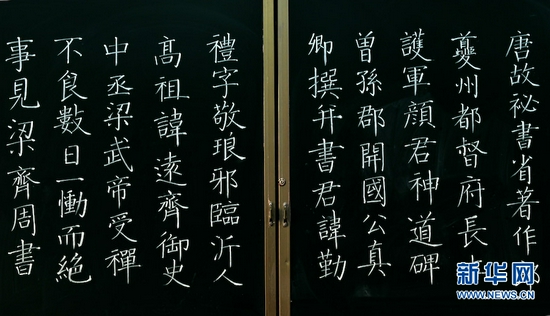 唐故祕書省著作郎
夔州都督府長史
護軍顏君神道碑
曾孫郡開國公真
卿撰并書君諱勤
禮字敬琅邪臨沂人
高祖諱遠齊御史
中丞梁武帝受禪
不食數日一慟而絕
事見梁齊周書
新华网
WWW.NEWS.CN